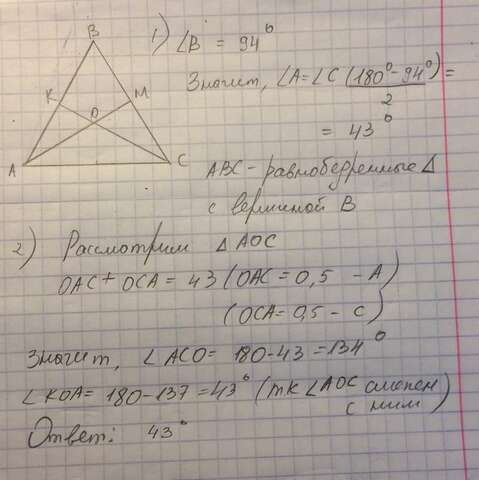 B
K
M
O
A
C
1) ∠B = 94°
Значит, ∠A=∠C (180°-94°) =
2
= 43°
ABC - равнобедренные Δ
с вершиной B
2) Рассмотрим ΔAOC
OAC + OCA = 43 (OAC = 0,5 - A)
(OCA = 0,5 - C)
Значит, ∠ACO = 180-43 = 134°
∠KOA = 180-137 = 43° (тк ∠AOC смежен
с ним)
Ответ: 43°